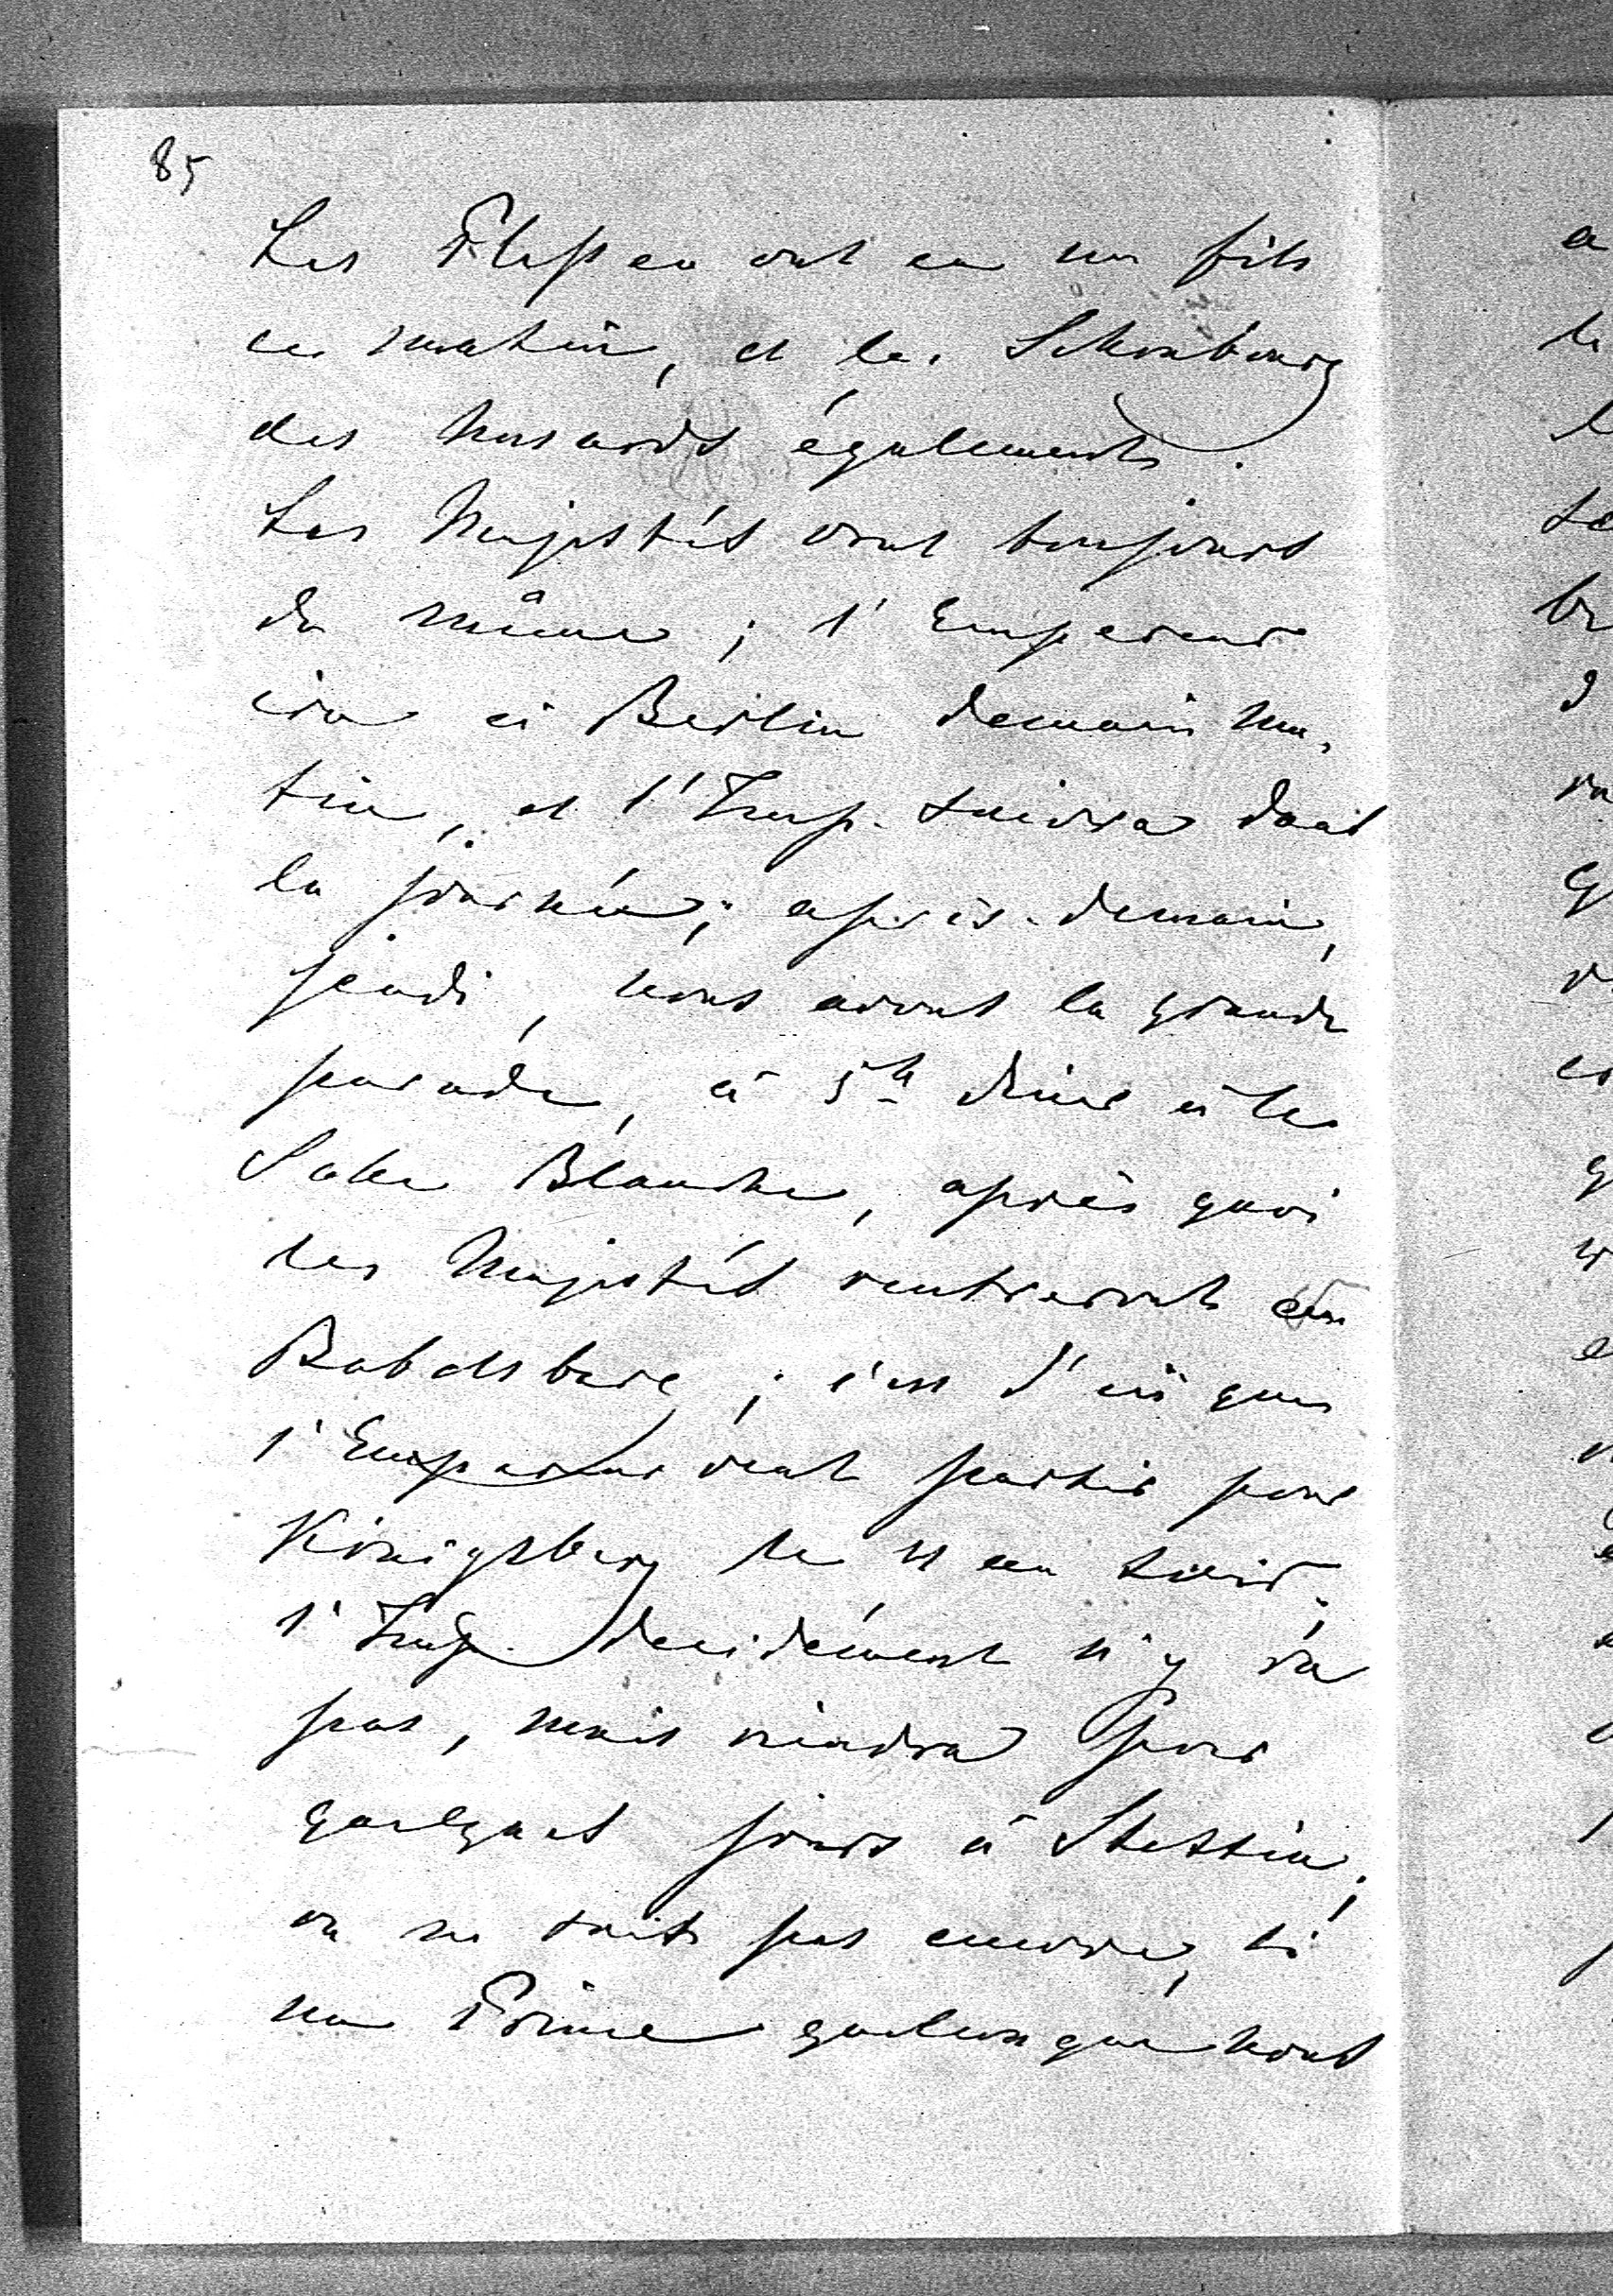 85
Les Plessen ont eu un fils
ce matin, et les Schönburg
des husards également.
Les Majestés vont toujours
de même ; l'Empereur
ira à Berlin demain ma-
tin, et l'Imp. suivra dans
la journée ; après-demain,
jeudi, nous avons la grande
parade, à 5h diner à la
Salle Blanche, après quoi
les Majestés rentreront au
Babelsberg ; c'est d'ici que
l'Empereur veut partir pour
Königsberg le 4 au soir ;
l'Imp. decidément n'y va
pas, mais viendra pour
quelques jours à Stettin ;
on ne sait pas encore, si
un Prince quelconque nous